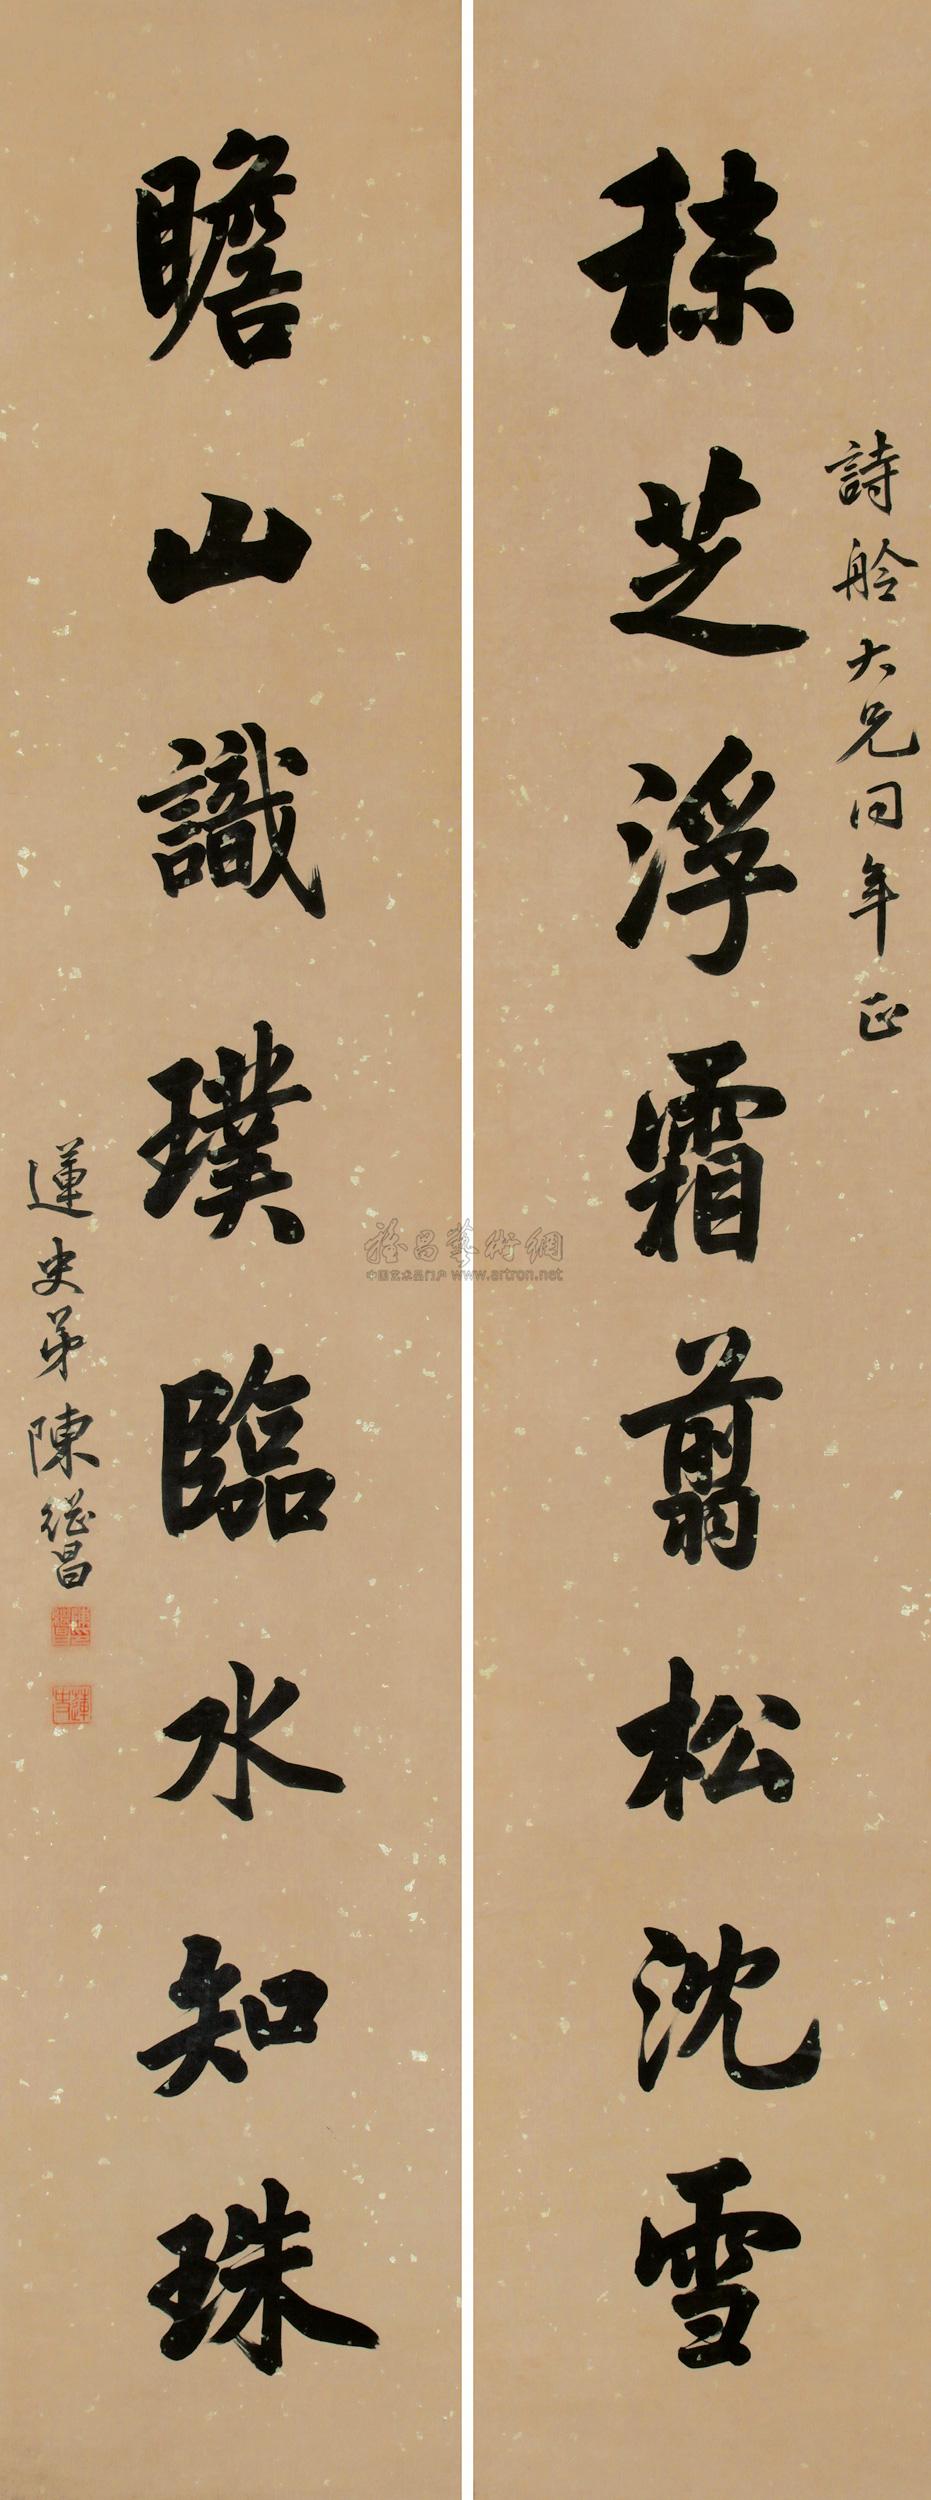 詩舲大兄同年正
秣芝浮霜翦松沈雪
瞻山識璞臨水知珠
蓮史弟陳繼昌
雅昌藝術網
中国艺术品门户 www.artron.net